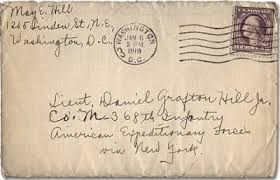 May E. Hill
1210 Linden St., N.E.
Washington, D.C.
WASHINGTON
JAN 6
5 PM
1919
D.C.
Lieut. Daniel Grafton Hill Jr.
Co. M - 368th Infantry
American Expeditionary Force
via New York.